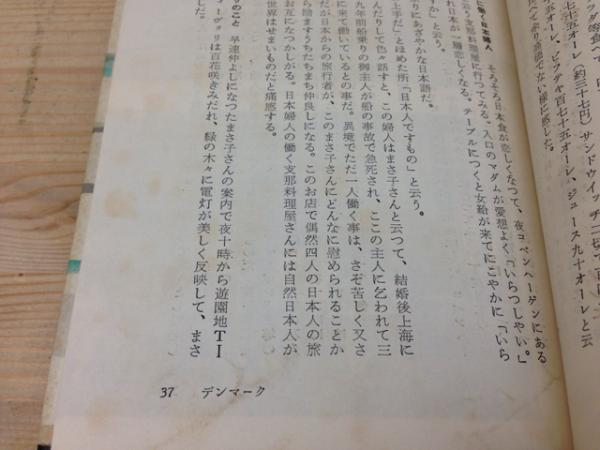 七十五オーレ(約三十七円)サンドウィッチ一切
百七十五オーレ、ジュース九十オーレと云
でない様に感じた。
に働く日本婦人 そろそろ日本食が恋しくなつて、夜コペンハーゲンにある
と云う支那料理屋に行つてみる。入口のマダムが愛想よく「いらつしやい。」
れ日本が一層恋しくなる。テーブルにつくと女給が来てにこやかに「いら
すか」と云う。
りにあざやかな日本語だ。
上手だ」とほめた所「日本人ですもの」と云う。
んだりして色々話すと、この婦人はまさ子さんと云つて、結婚後上海に
九年前船乗りの御主人が船の事故で急死され、ここの主人に乞われて三
に来て働いているとの事だ。異境でただ一人働く事は、さぞ苦しく又さ
だが日本からの旅行者が、このまさ子さんにどんなに慰められることか
うちたちまち仲良しになる。このお店で偶然四人の日本人の旅
お互になつかしがる。日本婦人の働く支那料理屋さんには自然日本人が
世界はせまいものだと痛感する。
のこと 早速仲よしになつたまさ子さんの案内で夜十時から遊園地TI
は百花咲きみだれ、緑の木々に電灯が美しく反映して、まさ
した。
37 デンマーク